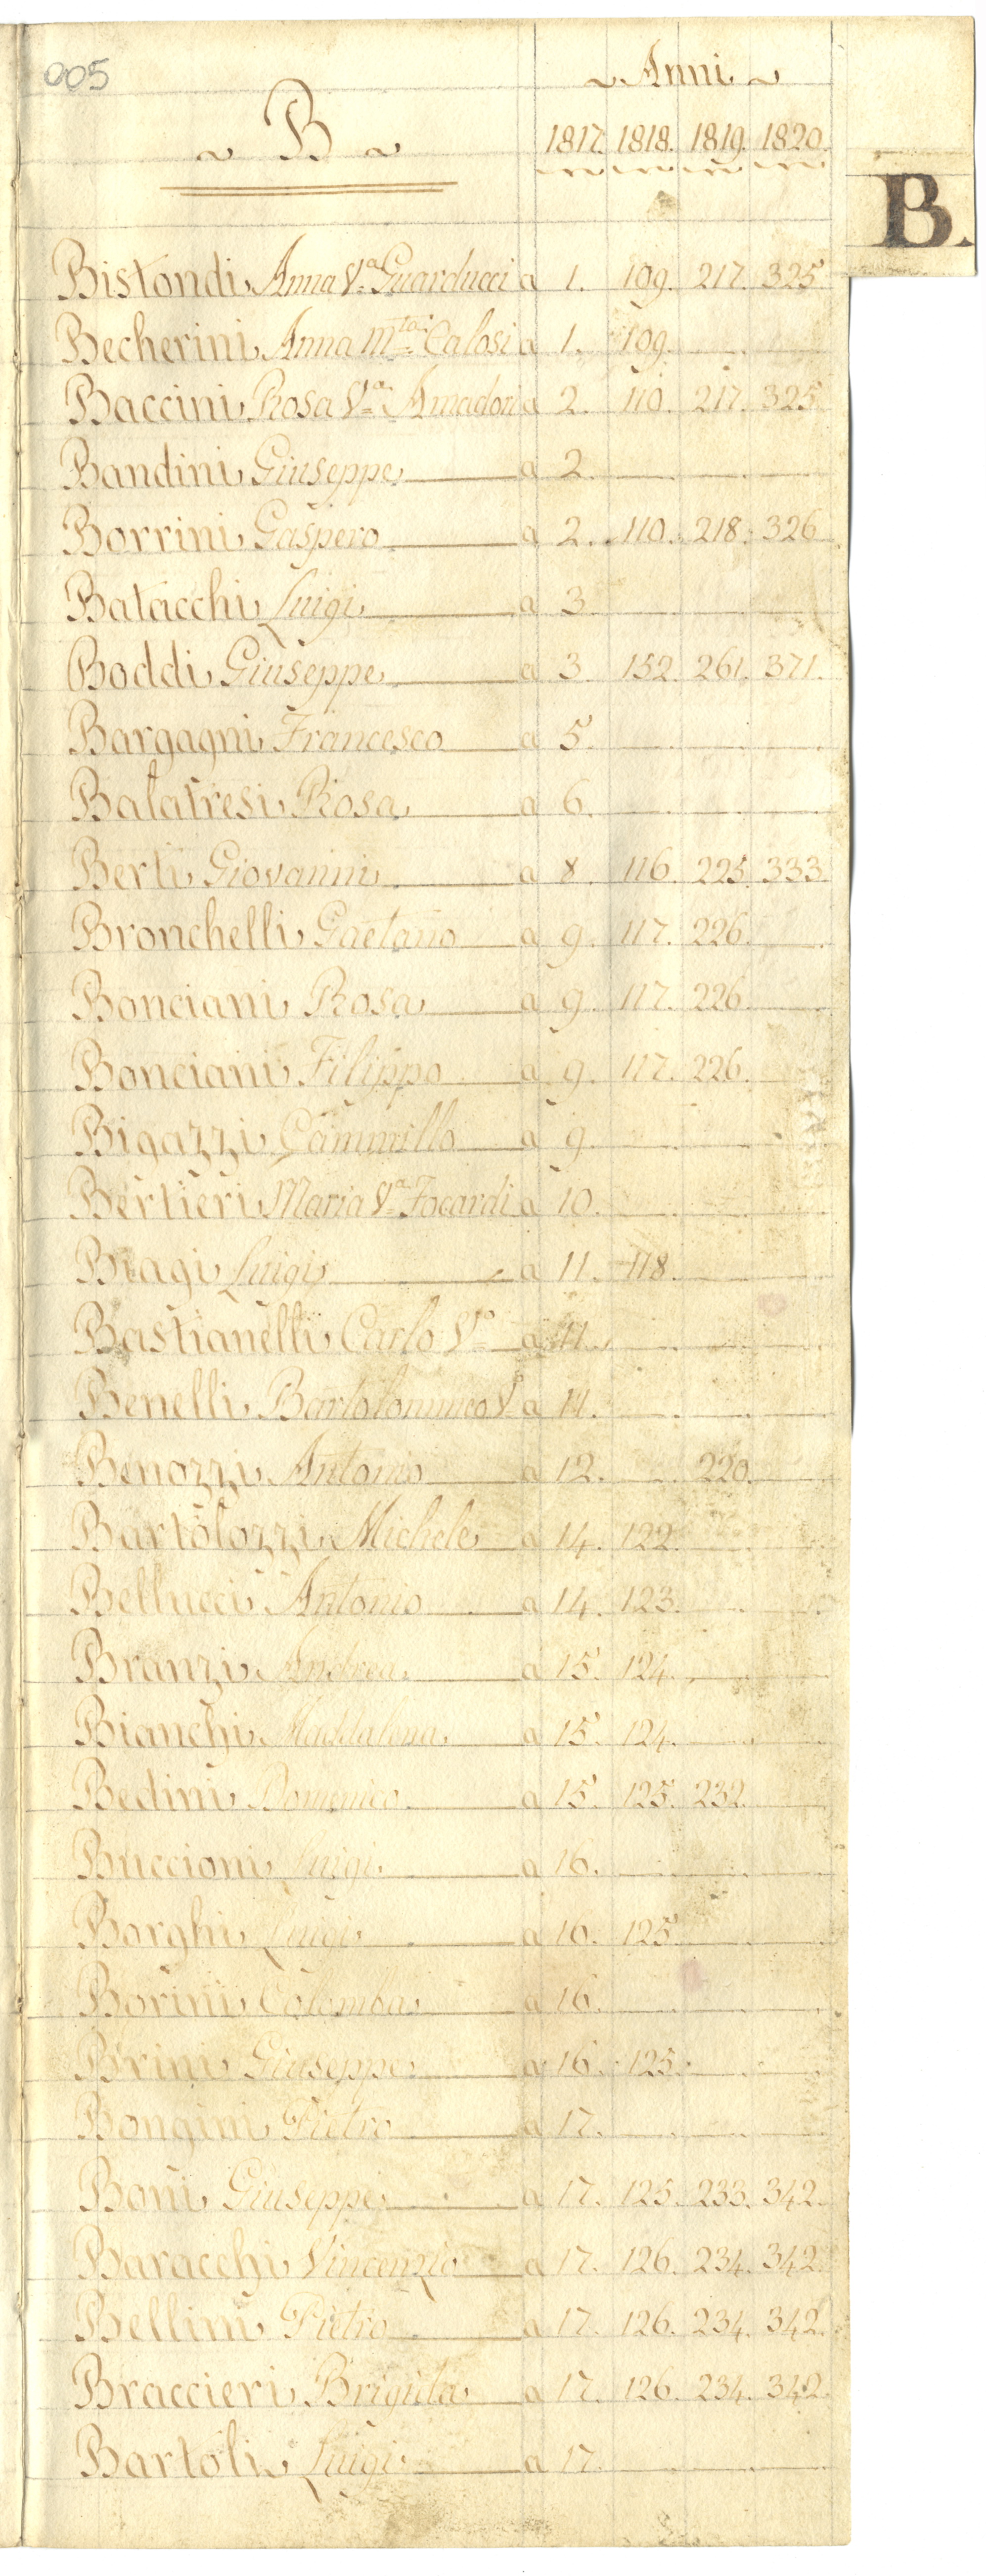 005
Anni
B
1817. 1818. 1819. 1820.
B.
Bistondi Anna Vª Guarducci a 1. 109. 217. 325
Becherini Anna Mta Calosi a 1. 109.
Baccini Rosa Vª Amadori a 2. 110. 217. 325
Bandini Giuseppe a 2.
Borrini Gaspero a 2. 110. 218. 326
Batacchi Luigi a 3
Boddi Giuseppe a 3. 152. 261. 371.
Bargagni Francesco a 5.
Balatresi Rosa a 6.
Berti Giovanni a 8. 116. 225. 333.
Bronchelli Gaetano a 9. 117. 226.
Bonciani Rosa a 9. 117. 226
Bonciani Filippo a 9. 117. 226.
Bigazzi Cammillo a 9.
Bertieri Maria Vª Focardi a 10.
Biagi Luigi a 11. 118.
Bastianelli Carlo Vº a 11.
Benelli Bartolommeo Vº a 11.
Benozzi Antonio a 12. 220.
Bartolozzi Michele a 14. 122.
Bellucci Antonio a 14. 123.
Branzi Andrea a 15. 124.
Bianchi Maddalena a 15. 124.
Bedini Domenico a 15. 125. 232.
Buccioni Luigi a 16.
Borghi Luigi a 16. 125
Borini Colomba a 16.
Brini Giuseppe a 16. 125.
Bongini Pietro a 17.
Boni Giuseppe a 17. 125. 233. 342.
Baracchi Vincenzio a 17. 126. 234. 342.
Bellini Pietro a 17. 126. 234. 342.
Braccieri Brigida a 17. 126. 234. 342.
Bartoli Luigi a 17.